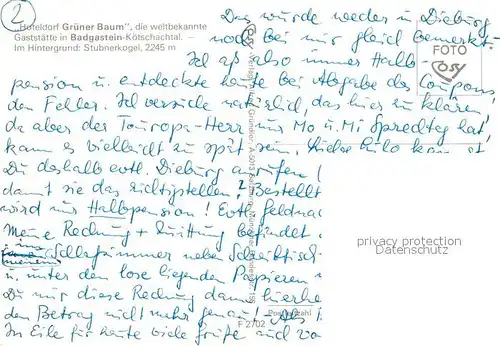 2
„Hoteldorf Grüner Baum", die weltbekannte
Gaststätte in Badgastein-Kötschachtal. —
Im Hintergrund: Stubnerkogel, 2245 m
Das wurde weder in Dieburg
noch bei mir gleich bemerkt
Ich aß also immer Halb
FOTO
COSY
pension u. entdeckte heute bei Abgabe des Coupons
den Fehler. Ich versuche natürlich, das hier zu klären
da aber der Touropa-Herr nur Mo u. Mi Sprechtag hat,
kann es vielleicht zu spät sein.
Du deshalb evtl. Dieburg anrufen
damit sie das richtigstellen? Bestellt
wird nur Halbpension! Evtl.
Meine Rechnung + Quittung befindet
in
meinem Schlafzimmer neben Schreibtisch
u. unter den lose liegenden Papieren
Du mir diese Rechnung dann hierher
den Betrag nicht mehr genau! Als
In Eile für heute viele Grüße auch
privacy protection
Datenschutz
F 2702